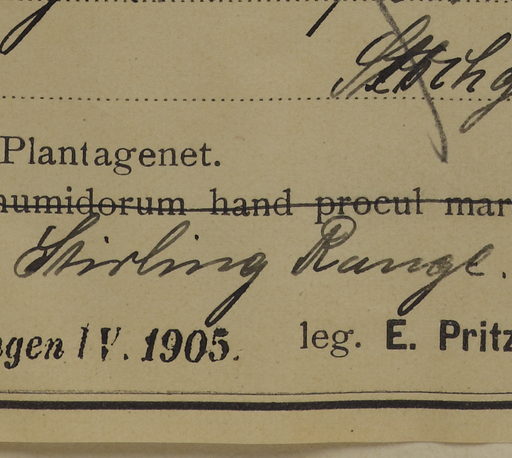 Plantagenet.
humidorum hand procul mar
Stirling Range.
ngen IV. 1905. leg. E. Pritz